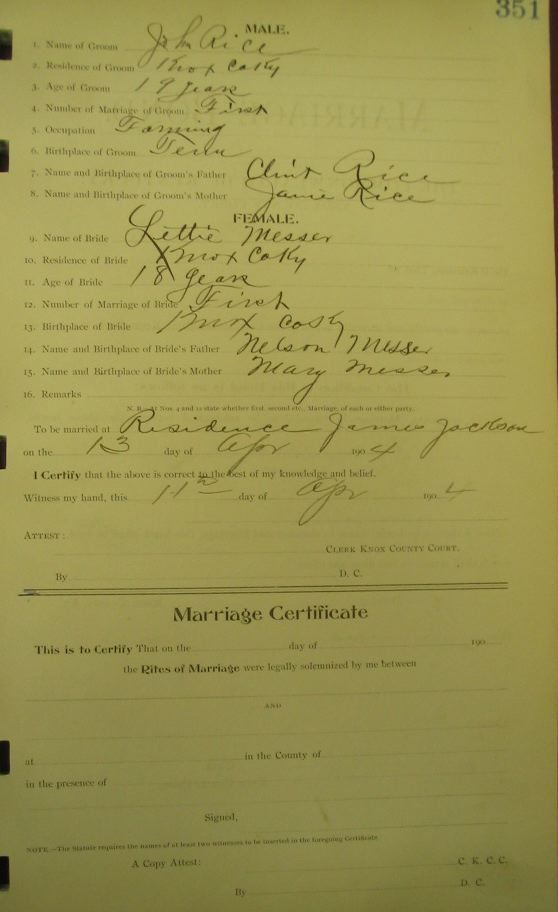 351
MALE.
1. Name of Groom John Rice
2. Residence of Groom Knox Co Ky
3. Age of Groom 19 years
4. Number of Marriage of Groom First
5. Occupation Farming
6. Birthplace of Groom Tenn
7. Name and Birthplace of Groom's Father Clint Rice
8. Name and Birthplace of Groom's Mother Janie Rice
FEMALE.
9. Name of Bride Lettie Messer
10. Residence of Bride Knox Co Ky
11. Age of Bride 18 years
12. Number of Marriage of Bride First
13. Birthplace of Bride Knox Co Ky
14. Name and Birthplace of Bride's Father Nelson Messer
15. Name and Birthplace of Bride's Mother Mary Messer
16. Remarks
N. B.—At Nos 4 and 12 state whether first, second etc., Marriage, of each or either party.
To be married at Residence James Jackson
on the 13 day of Apr 1904
I Certify that the above is correct to the best of my knowledge and belief.
Witness my hand, this 11 day of Apr 1904
ATTEST:
CLERK KNOX COUNTY COURT.
By D. C.
Marriage Certificate
This is to Certify That on the day of 190
the Rites of Marriage were legally solemnized by me between
AND
at in the County of
in the presence of
Signed,
NOTE.—The Statute requires the names of at least two witnesses to be inserted in the foregoing Certificate
A Copy Attest: C. K. C. C.
By D. C.